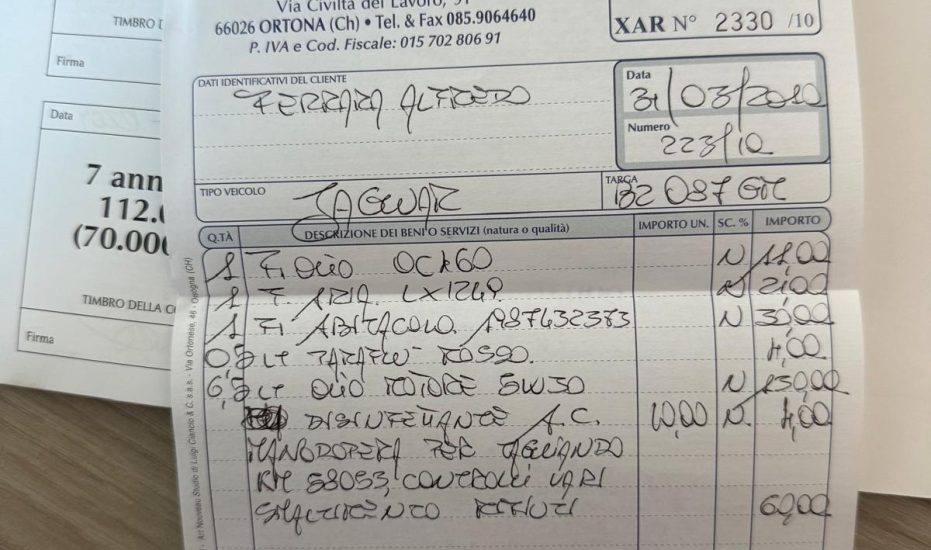 Via Civiltà del Lavoro, 91
66026 ORTONA (Ch) • Tel. & Fax 085.9064640
P. IVA e Cod. Fiscale: 015 702 806 91
XAR N° 2330 /10
TIMBRO
Firma
DATI IDENTIFICATIVI DEL CLIENTE
FERRARA ALFREDO
Data
31/03/2010
Numero
223/10
TIPO VEICOLO
JAGUAR
TARGA
BZ 087 GM
Data
7 ann
112.0
(70.000
TIMBRO DELLA
Firma
Q.TÀ DESCRIZIONE DEI BENI O SERVIZI (natura o qualità) IMPORTO UN. SC. % IMPORTO
1 F. OLIO OCK60 N 11,00
1 F. ARIA LX1249 N 21,00
1 F. ABITACOLO 1987432383 N 30,00
0,5 LT PARAFLU ROSSO. 4,00
6,5 LT OLIO MOTORE 5W30 N 130,00
DISINFETTANTE A.C. 10,00 N. 4,00
MANODOPERA PER TAGLIANDO
KM 58053, CONTROLLI VARI
SMALTIMENTO RIFIUTI 60,00
Art Nouveau Studio di Luigi Ciancio & C. s.a.s. - Via Ortonese, 46 - Orsogna (CH)